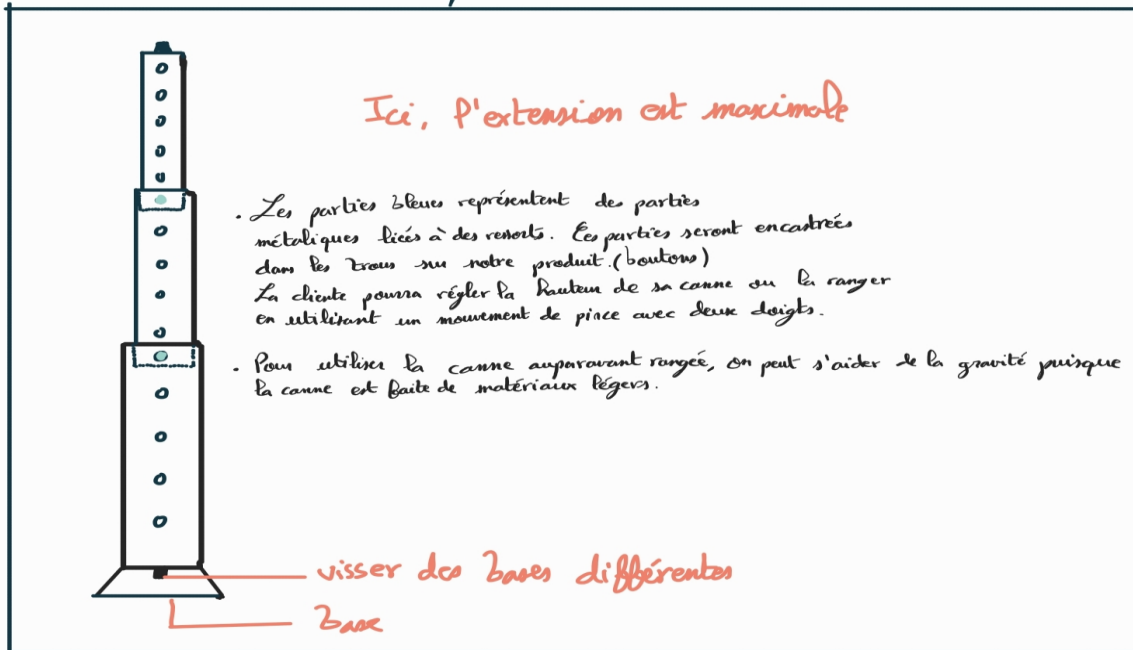 Ici, l'extension est maximale
. Les parties bleues représentent des parties
métaliques liées à des ressorts. Ces parties seront encastrées
dans les trous sur notre produit. (boutons)
La cliente pourra régler la hauteur de sa canne ou la ranger
en utilisant un mouvement de pince avec deux doigts.
. Pour utiliser la canne auparavant rangée, on peut s'aider de la gravité puisque
la canne est faite de matériaux légers.
visser des bases différentes
Base